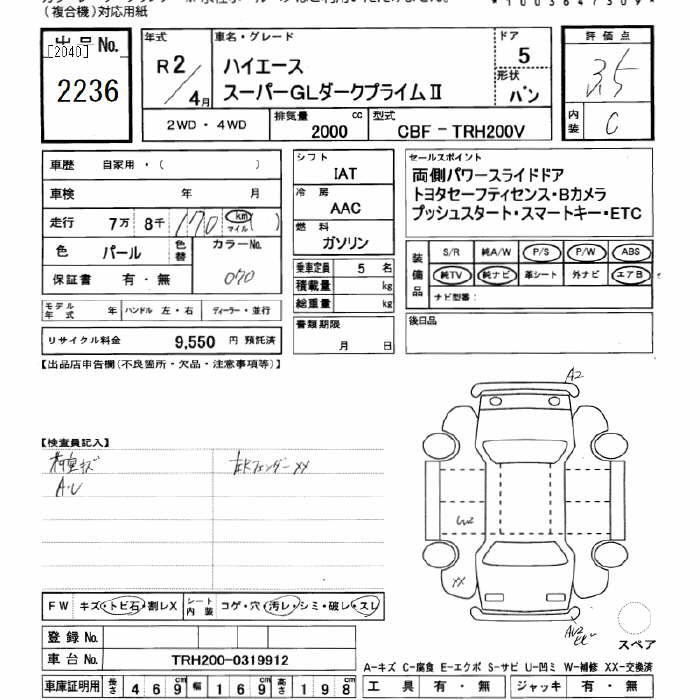 (複合機)対応用紙
出品No.
[2040]
2236
年式
R2/4月
車名・グレード
ハイエース
スーパーGLダークプライムⅡ
ドア
5
形状
バン
評価点
3.5
内装
C
2WD・4WD
排気量
2000 cc
型式
CBF-TRH200V
車歴 自家用・( )
車検 年 月
走行 7万 8千 170 km マイル ( )
色 パール 色替 カラーNo.
070
保証書 有・無
モデル年式 年 ハンドル 左・右 ディーラー・並行
リサイクル料金 9,550 円 預託済
シフト
IAT
冷房
AAC
燃料
ガソリン
乗車定員 5 名
積載量 kg
総重量 kg
書類期限
月 日
セールスポイント
両側パワースライドドア
トヨタセーフティセンス・Bカメラ
プッシュスタート・スマートキー・ETC
装備品
S/R 純A/W P/S P/W ABS
純TV 純ナビ 革シート 外ナビ エアB
ナビ型番:
後日品
【出品店申告欄(不良箇所・欠品・注意事項等)】
A2
【検査員記入】
荷室キズ
A・U
右Rフェンダー XX
W2
XX
FW キズ・トビ石・割レX
シート内装 コゲ・穴・汚レ・シミ・破レ・スレ
登録No.
車台No. TRH200-0319912
スペア
A-キズ C-腐食 E-エクボ S-サビ U-凹ミ W-補修 XX-交換済
車庫証明用 長さ 469cm 幅 169cm 高さ 198cm
工具 有・無 ジャッキ 有・無